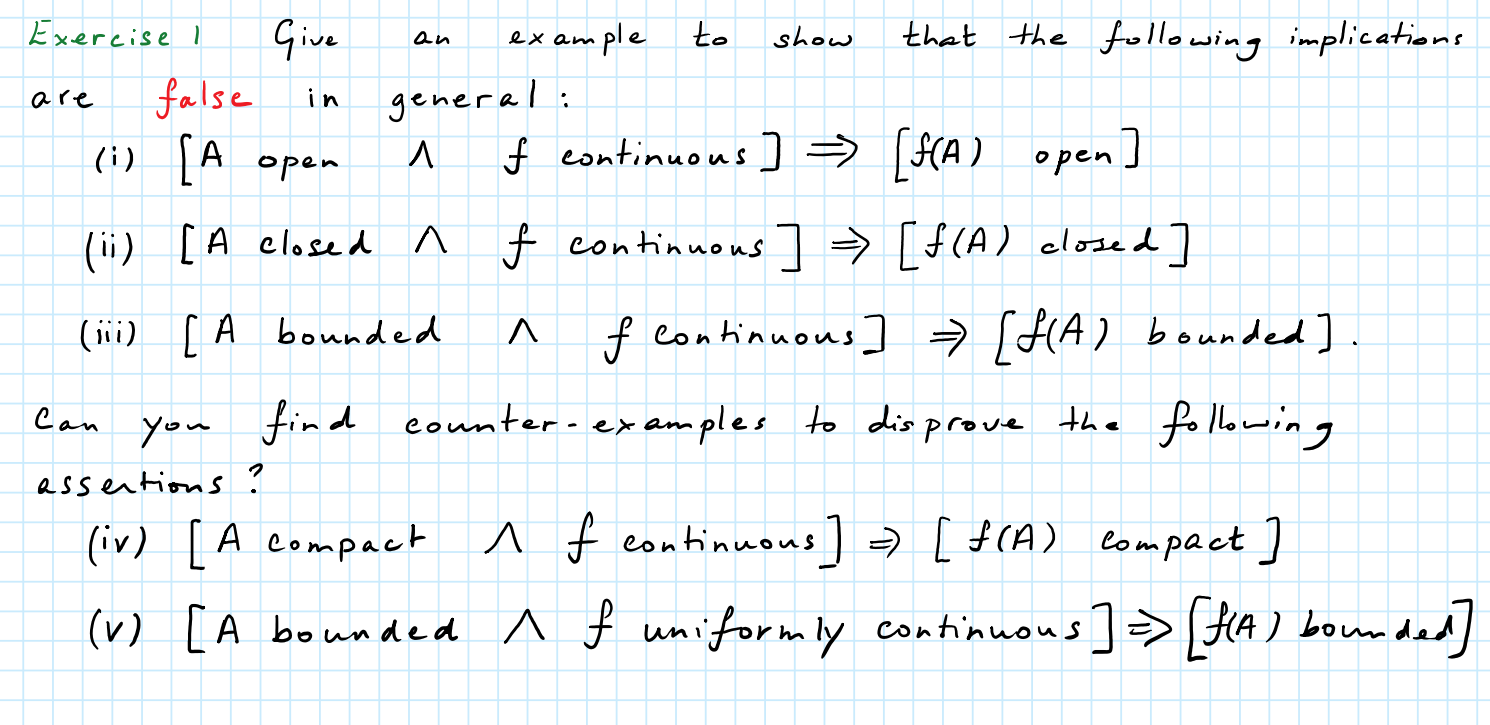 Exercise 1 Give an example to show that the following implications
are false in general:
(i) [A open ∧ f continuous] ⇒ [f(A) open]
(ii) [A closed ∧ f continuous] ⇒ [f(A) closed]
(iii) [A bounded ∧ f continuous] ⇒ [f(A) bounded].
Can you find counter-examples to disprove the following
assertions?
(iv) [A compact ∧ f continuous] ⇒ [f(A) compact]
(v) [A bounded ∧ f uniformly continuous] ⇒ [f(A) bounded]